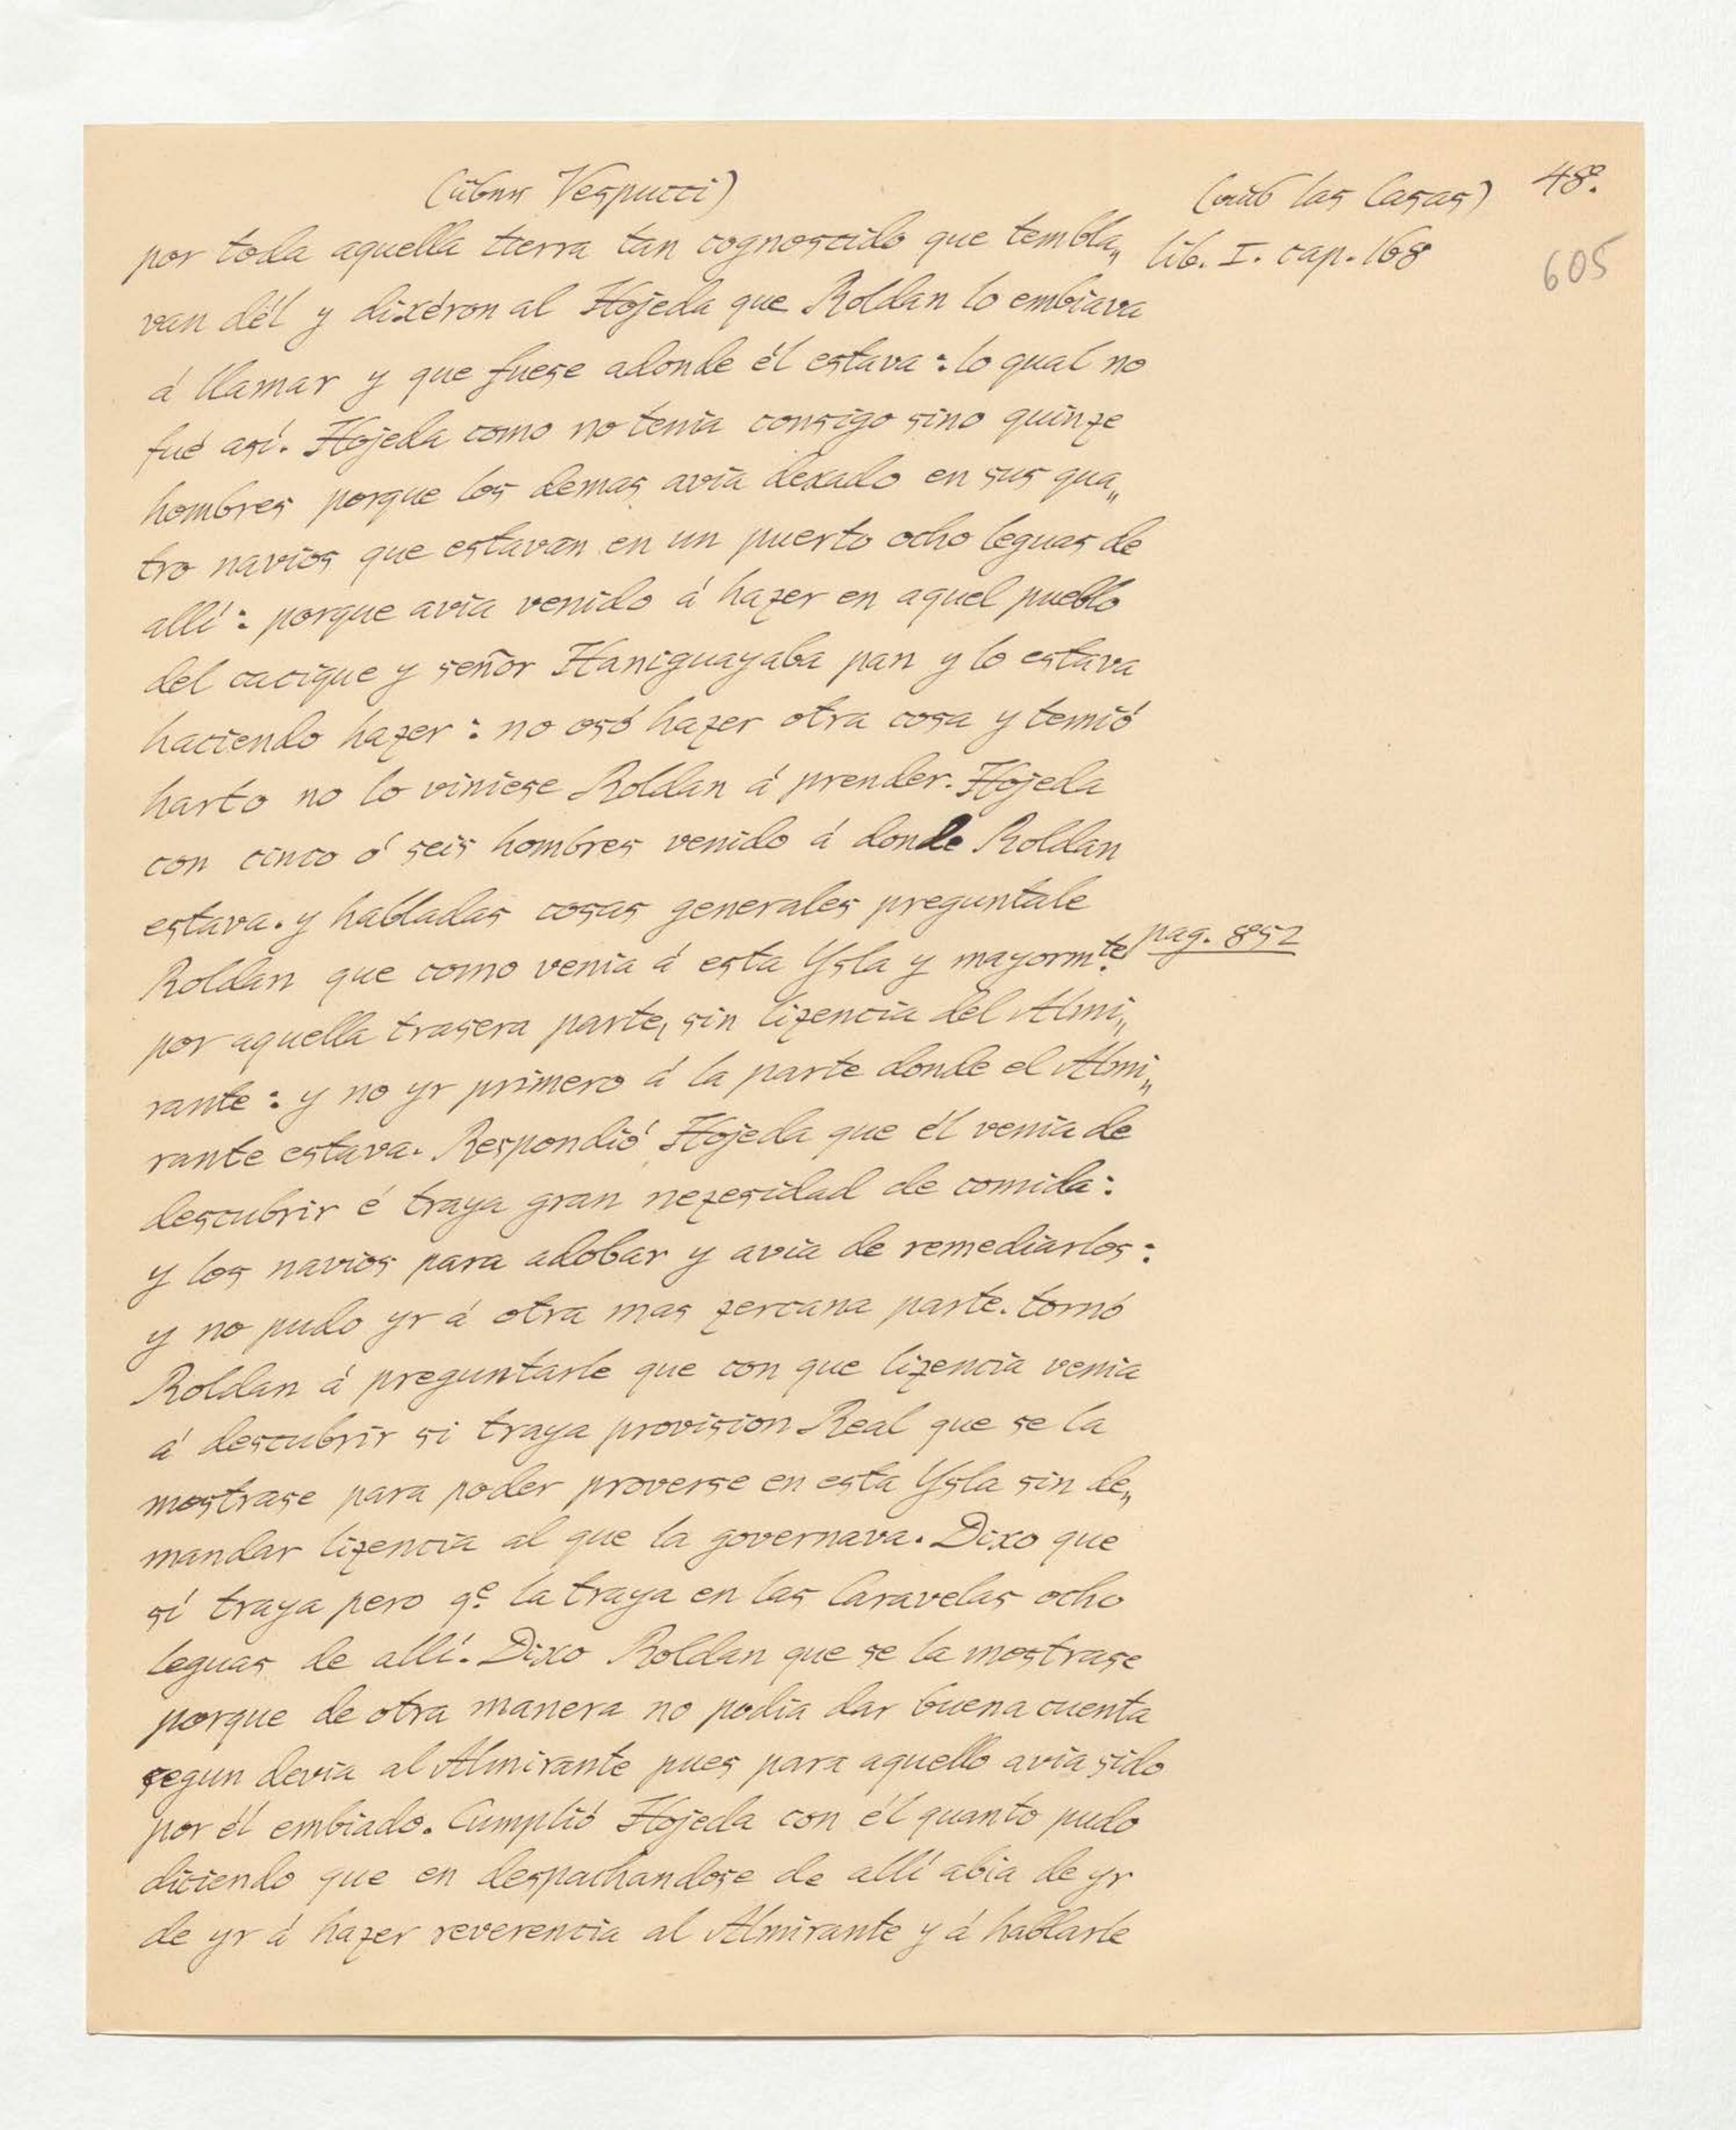 (über Vespucci)
(aus las Casas)
48.
605
por toda aquella tierra tan cognoscido que tembla„
lib. I. cap. 168
van dél y dixéron al Hojeda que Roldan lo embiava
á llamar y que fuese adonde él estava: lo qual no
fué asi. Hojeda como no tenia consigo sino quinze
hombres porque los demas avia dexado en sus qua„
tro navios que estavan en un puerto ocho leguas de
allí: porque avia venido á hazer en aquel pueblo
del cacique y señor Haniguayaba pan y lo estava
haciendo hazer: no osó hazer otra cosa y temió
harto no lo viniese Roldan á prender. Hojeda
con cinco ó seis hombres venido á donde Roldan
estava. y habladas cosas generales preguntale
Roldan que como venia á esta Ysla y mayormte.
pag. 852
por aquella trasera parte, sin lizencia del Almi„
rante: y no yr primero á la parte donde el Almi„
rante estava. Respondió Hojeda que él venia de
descubrir é traya gran nezesidad de comida:
y los navios para adobar y avia de remediarlos:
y no pudo yr á otra mas zercana parte. tornó
Roldan á preguntarle que con que lizencia venia
á descubrir si traya provision Real que se la
mostrase para poder proverse en esta Ysla sin de„
mandar lizencia al que la governava. Dixo que
sí traya pero qe. la traya en las Caravelas ocho
leguas de allí. Dixo Roldan que se la mostrase
porque de otra manera no podia dar buena cuenta
segun devia al Almirante pues para aquello avia sido
por él embiado. Cumplió Hojeda con él quanto pudo
diciendo que en despachandose de allí abia de yr
de yr á hazer reverencia al Almirante y á hablarle